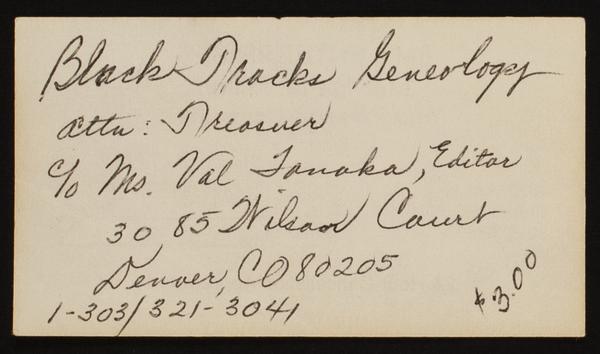 Black Tracks Geneology
Attn: Treasuer
c/o Ms. Val Tanaka, Editor
3085 Wilson Court
Denver, CO 80205
1-303/321-3041
$3.00